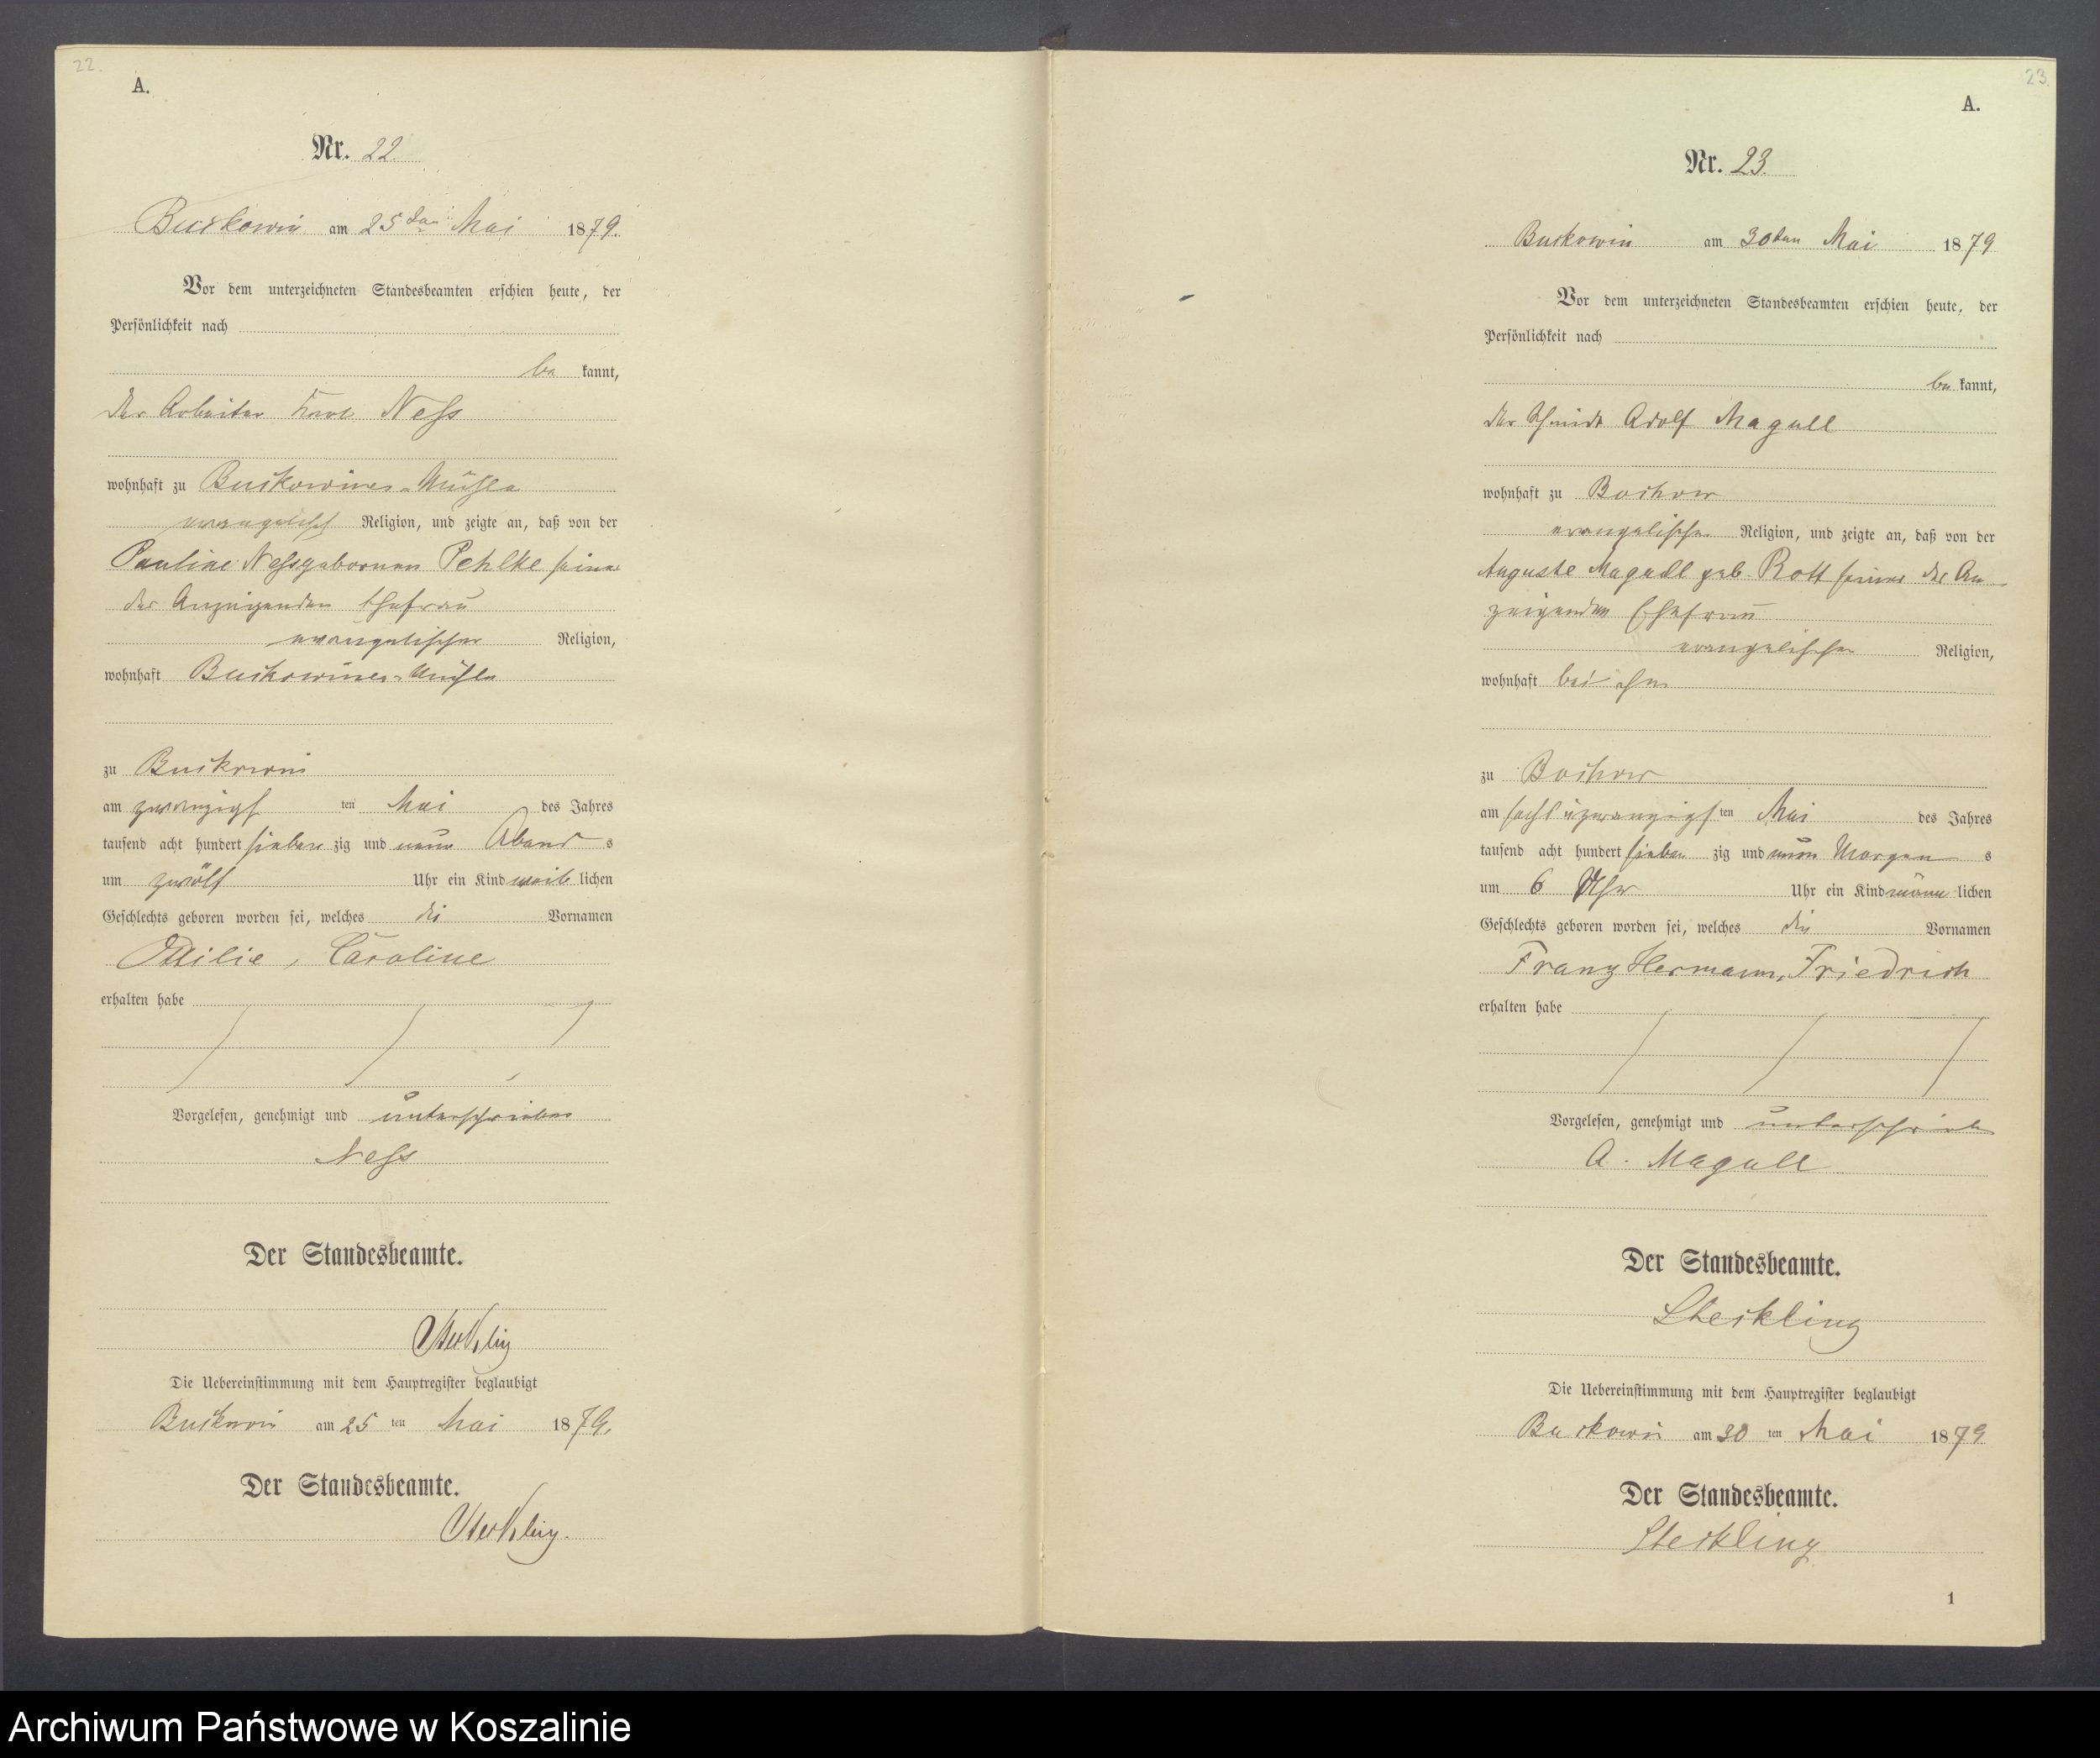 22.
A.
Nr. 22.
Buckowin am 25ten Mai 1879.
Vor dem unterzeichneten Standesbeamten erschien heute, der
Persönlichkeit nach
be kannt,
der Arbeiter Karl Neß
wohnhaft zu Buckowiner-Mühle
evangelisch Religion, und zeigte an, daß von der
Pauline Neß geborenen Pehlke seine
des Anzeigenden Ehefrau
evangelischer Religion,
wohnhaft Buckowiner-Mühle
zu Buckowin
am zwanzigst ten Mai des Jahres
tausend acht hundert sieben zig und neun Abend s
um zwölf Uhr ein Kind weib lichen
Geschlechts geboren worden sei, welches die Vornamen
Ottilie, Caroline
erhalten habe
Vorgelesen, genehmigt und unterschrieben
Neß
Der Standesbeamte.
Steckling
Die Uebereinstimmung mit dem Hauptregister beglaubigt
Buckowin am 25 ten Mai 1879.
Der Standesbeamte.
Steckling.
23.
A.
Nr. 23.
Buckowin am 30ten Mai 1879
Vor dem unterzeichneten Standesbeamten erschien heute, der
Persönlichkeit nach
be kannt,
der Schmidt Adolf Magull
wohnhaft zu Bochow
evangelischer Religion, und zeigte an, daß von der
Auguste Magull geb. Rott seiner des An-
zeigenden Ehefrau
evangelischer Religion,
wohnhaft bei ihm
zu Bochow
am sechsuzwanzigst ten Mai des Jahres
tausend acht hundert sieben zig und neun Morgen s
um 6 Uhr Uhr ein Kind männ lichen
Geschlechts geboren worden sei, welches die Vornamen
Franz Hermann, Friedrich
erhalten habe
Vorgelesen, genehmigt und unterschrieben
A. Magull
Der Standesbeamte.
Steckling
Die Uebereinstimmung mit dem Hauptregister beglaubigt
Buckowin am 30 ten Mai 1879
Der Standesbeamte.
Steckling
1
Archiwum Państwowe w Koszalinie